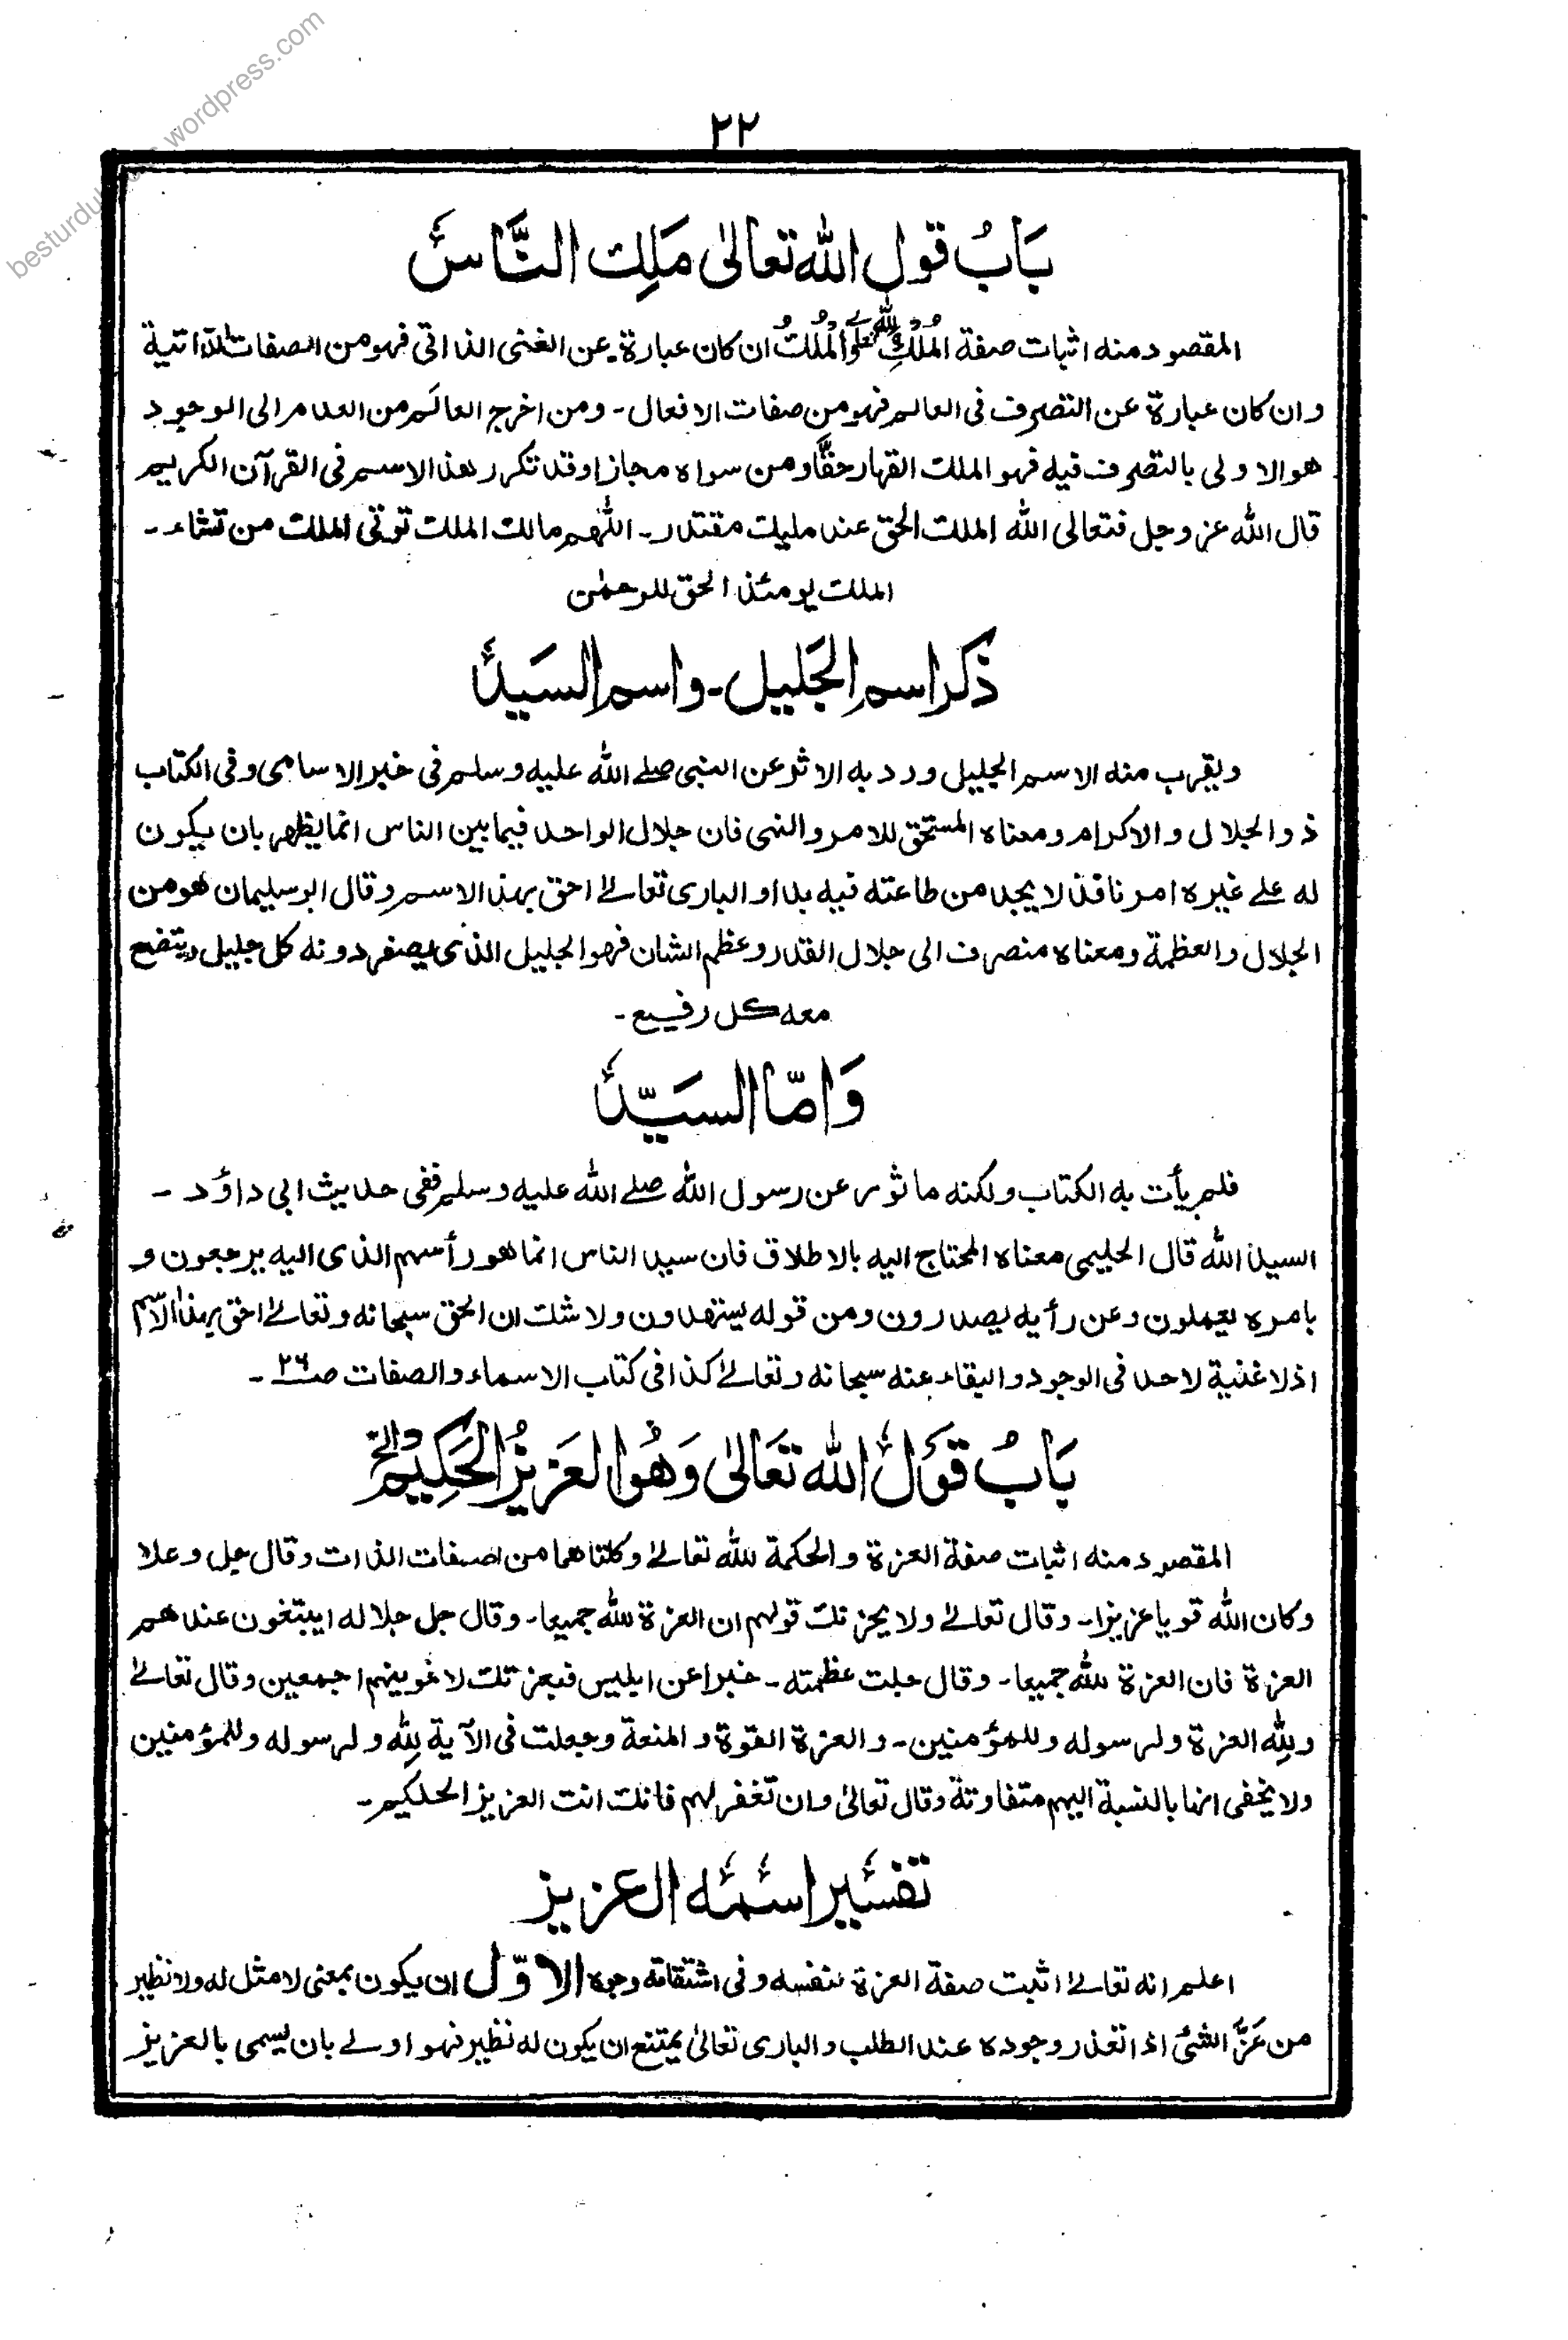 besturdubooks.wordpress.com
٢٢
بَابُ قول الله تعالىٰ مَلِك النَّاسْ
المقصود منه اثبات صفة المُلْكِ لله تعالى والمُلْكُ ان كان عبارة عن الغنى الذاتى فهو من الصفات الذاتية
وان كان عبارة عن التصرف فى العالم فهو من صفات الافعال - ومن اخرج العالَم من العدم الى الوجود
هو الاولى بالتصرف فيه فهو الملك القهار حقًّا ومن سواه مجازا وقد تكرر هذا الاسم فى القرآن الكريم
قال الله عز وجل فتعالى الله الملك الحق عند مليك مقتدر - اللّٰهم مالك الملك توتى الملك من تشاء -
الملك يومئذ الحق للرحمٰن
ذكر اسم الجَليل - واسم السَيدْ
ويقرب منه الاسم الجليل ورد به الاثر عن النبى صلے الله عليه وسلم فى خبر الاسامى وفى الكتاب
ذو الجلال والاكرام ومعناه المستحق للامر والنهى فان جلال الواحد فيما بين الناس انما يظهر بان يكون
له علے غيره امر نافذ لا يجد من طاعته فيه بدا والبارى تعالےٰ احق بهذا الاسم وقال ابو سليمان هو من
الجلال والعظمة ومعناه منصرف الى جلال القدر وعظم الشان فهو الجليل الذى يصغر دونه كل جليل ويتضع
معه كل رفيع -
وَامّا السَيّدْ
فلم يأت به الكتاب ولكنه ماثور عن رسول الله صلے الله عليه وسلم ففى حديث ابى داؤد -
السيد الله قال الحليمى معناه المحتاج اليه بالاطلاق فان سيد الناس انما هو رأسهم الذى اليه يرجعون و
بامره يعملون وعن رأيه يصدرون ومن قوله يستهدون ولا شك ان الحق سبحانه وتعالےٰ احق بهذا الاسم
اذ لا غنية لاحد فى الوجود والبقاء عنه سبحانه وتعالےٰ كذا فى كتاب الاسماء والصفات صـ٢٦ -
بَابُ قوَلْ الله تعَالىٰ وَهُوا لعَزيزُ الحَكِيْم والخ
المقصود منه اثبات صفة العزة والحكمة لله تعالےٰ وكلتاهما من صفات الذات وقال جل وعلا
وكان الله قويا عزيزا - وقال تعالےٰ ولا يحزنك قولهم ان العزة لله جميعا - وقال جل جلاله ايبتغون عندهم
العزة فان العزة لله جميعا - وقال جلت عظمته - خبرا عن ابليس فبعزتك لاغوينهم اجمعين وقال تعالےٰ
ولِله العزة ولرسوله وللمؤمنين - والعزة القوة والمنعة وجعلت فى الآية لِله ولرسوله وللمؤمنين
ولا يخفى انها بالنسبة اليهم متفاوتة وقال تعالىٰ وان تغفر لهم فانك انت العزيز الحكيم -
تفسْير اسْمْه العزيز
اعلم انه تعالےٰ اثبت صفة العزة لنفسه وفى اشتقاقه وجوه الاوّل ان يكون بمعنى لا مثل له ولا نظير
من عَزَّ الشئ اذا تعذر وجوده عند الطلب والبارى تعالىٰ يمتنع ان يكون له نظير فهو اولے بان يسمى بالعزيز